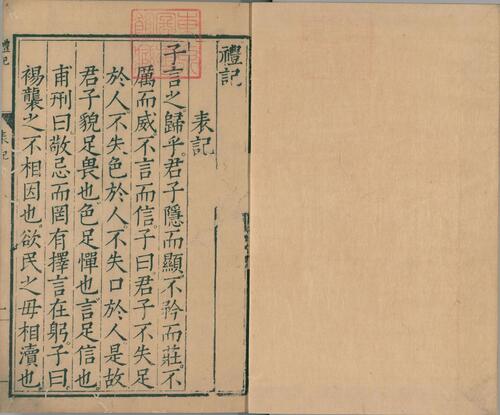 禮記
表記
子言之歸乎君子隱而顯不矜而莊不
厲而威不言而信子曰君子不失足
於人不失色於人不失口於人是故
君子貌足畏也色足憚也言足信也
甫刑曰敬忌而罔有擇言在躬子曰
裼襲之不相因也欲民之毋相瀆也
禮記
表記
一